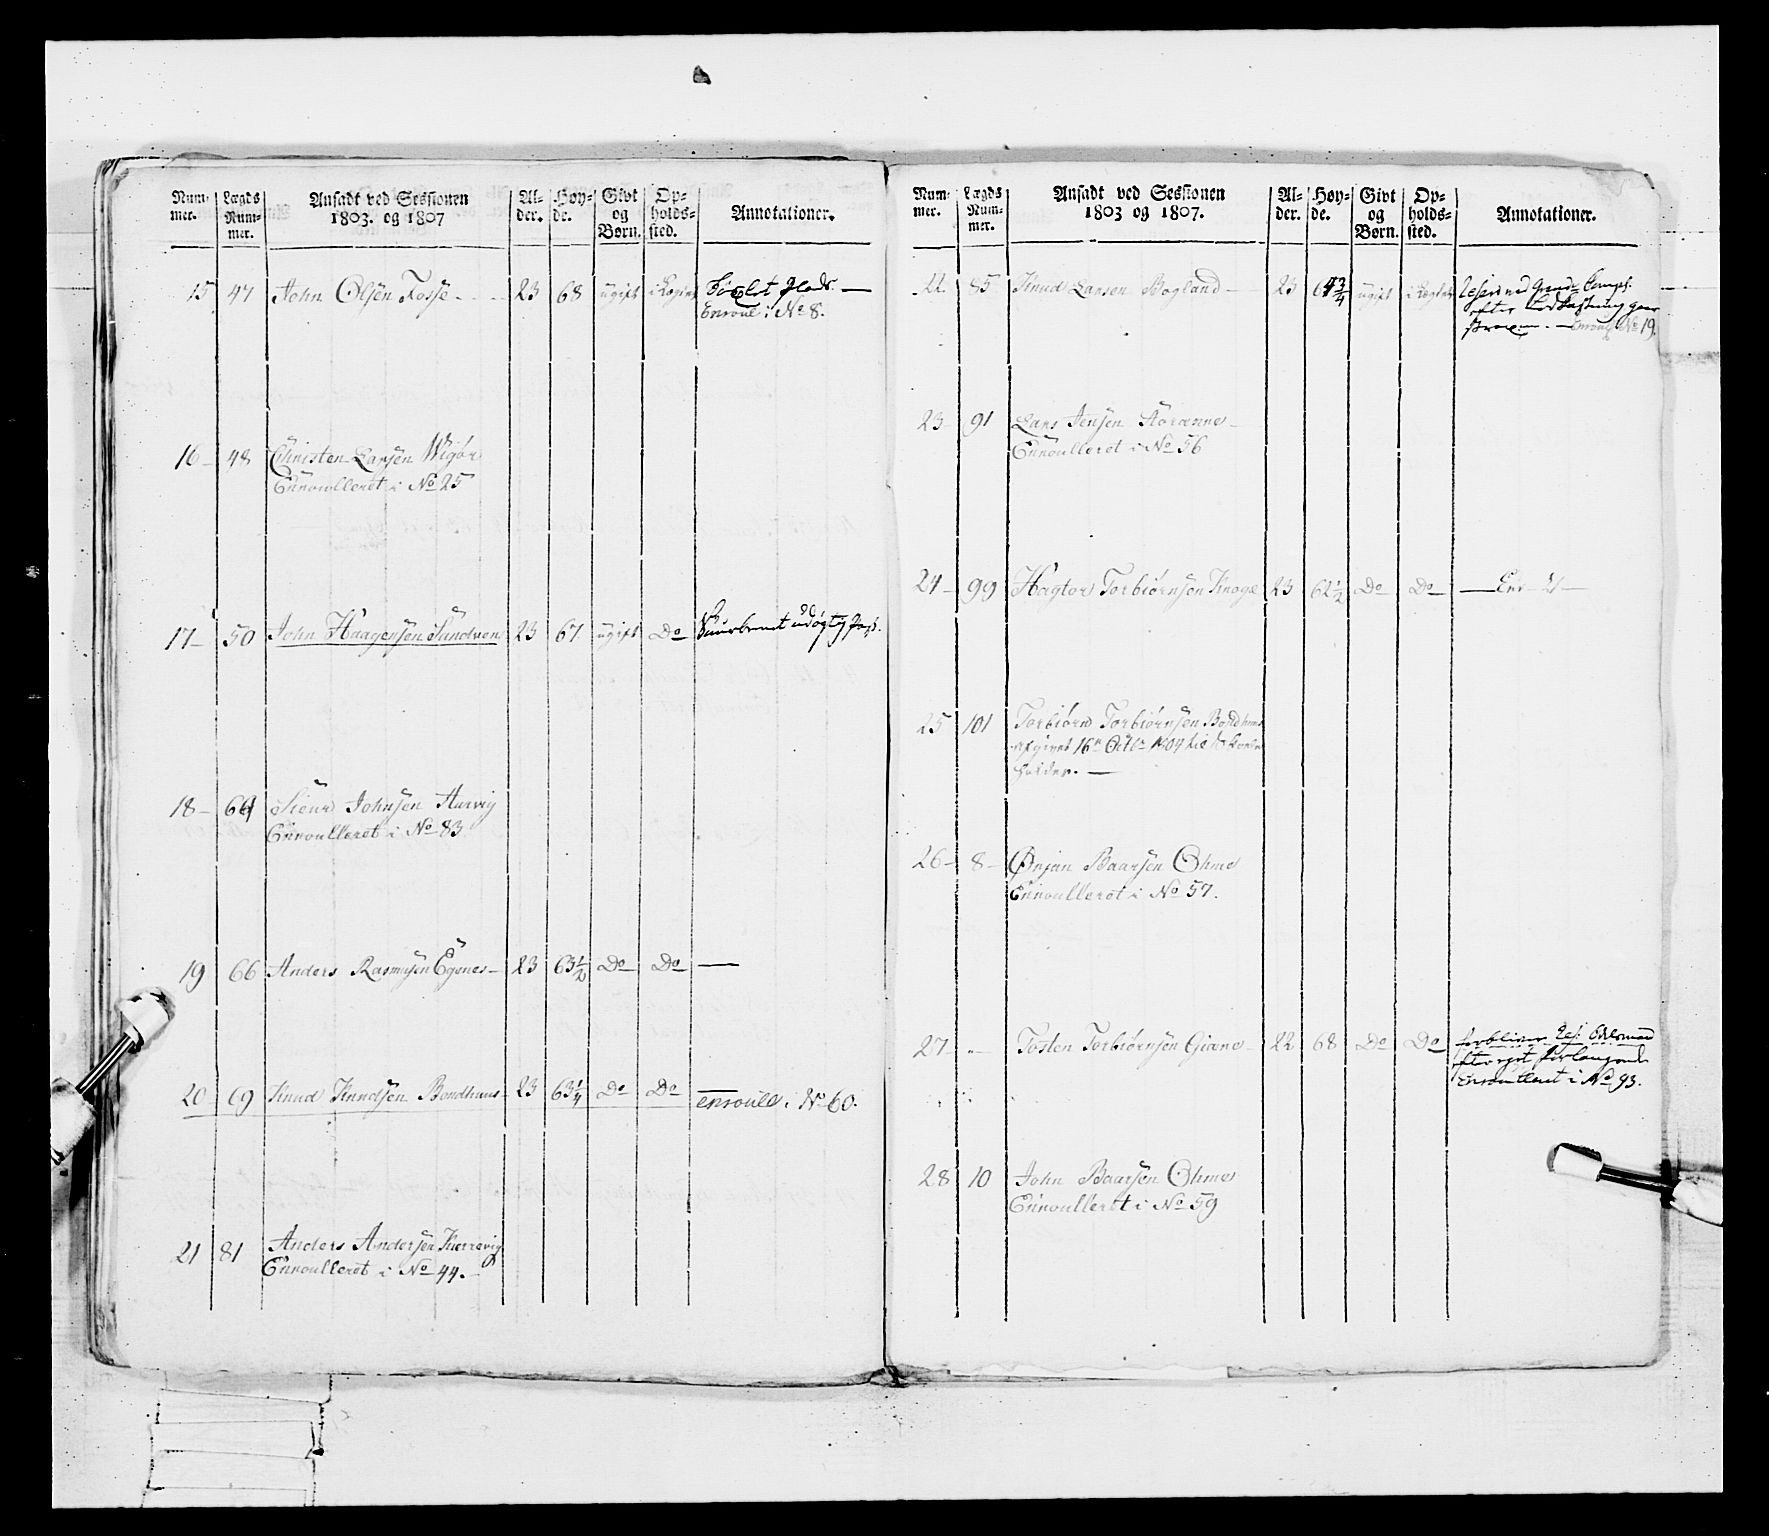 Num- mer. | Lægds Num- mer. | Ansadt ved Sessionen 1803. og 1807 | Al- der. | Høy- de. | Givt og Børn. | Op- holds- sted. | Annotationer.
15 47 John Olsen Fosse 23 68 ugift
Enroul: i No 8.
16 48 Christen Larsen Wigør
Enroulleret i No 25
17 50 John Haagensen Sundven 23 67 ugift Do
18 64 Siur Johnsen Aarvig
Enroulleret i No 83
19 66 Anders Rasmusen Egenes 23 63½ Do Do —
20 69 Knud Knudsen Bondhuus 23 63¼ Do Do enroull: i No 60.
21 81 Anders Andersen Kierrevig
Enroulleret i No 44.
Num- mer. | Lægds Num- mer. | Ansadt ved Sessionen 1803 og 1807. | Al- der. | Høy- de. | Givt og Børn. | Op- holds- sted. | Annotationer.
22 85 Knud Larsen Bogland 23 64¾ ugift
No 19.
23 91 Lars Jensen
Enroulleret i No 56
24 99 Hagtor Torbiørnsen 23 62½ Do Do
25 101 Torbiørn Torbiørnsen Bondhuus
afgivet 16n Octbr 1804 til
holder.
26 8 Ørjan Baarsen Ohme
Enroulleret i No 57.
27 Tosten Torbiørnsen Giane 22 68 Do Do forbliver
efter eget forlangende
Enroulleret i No 93.
28 10 John Baarsen Ohme
Enroulleret i No 59